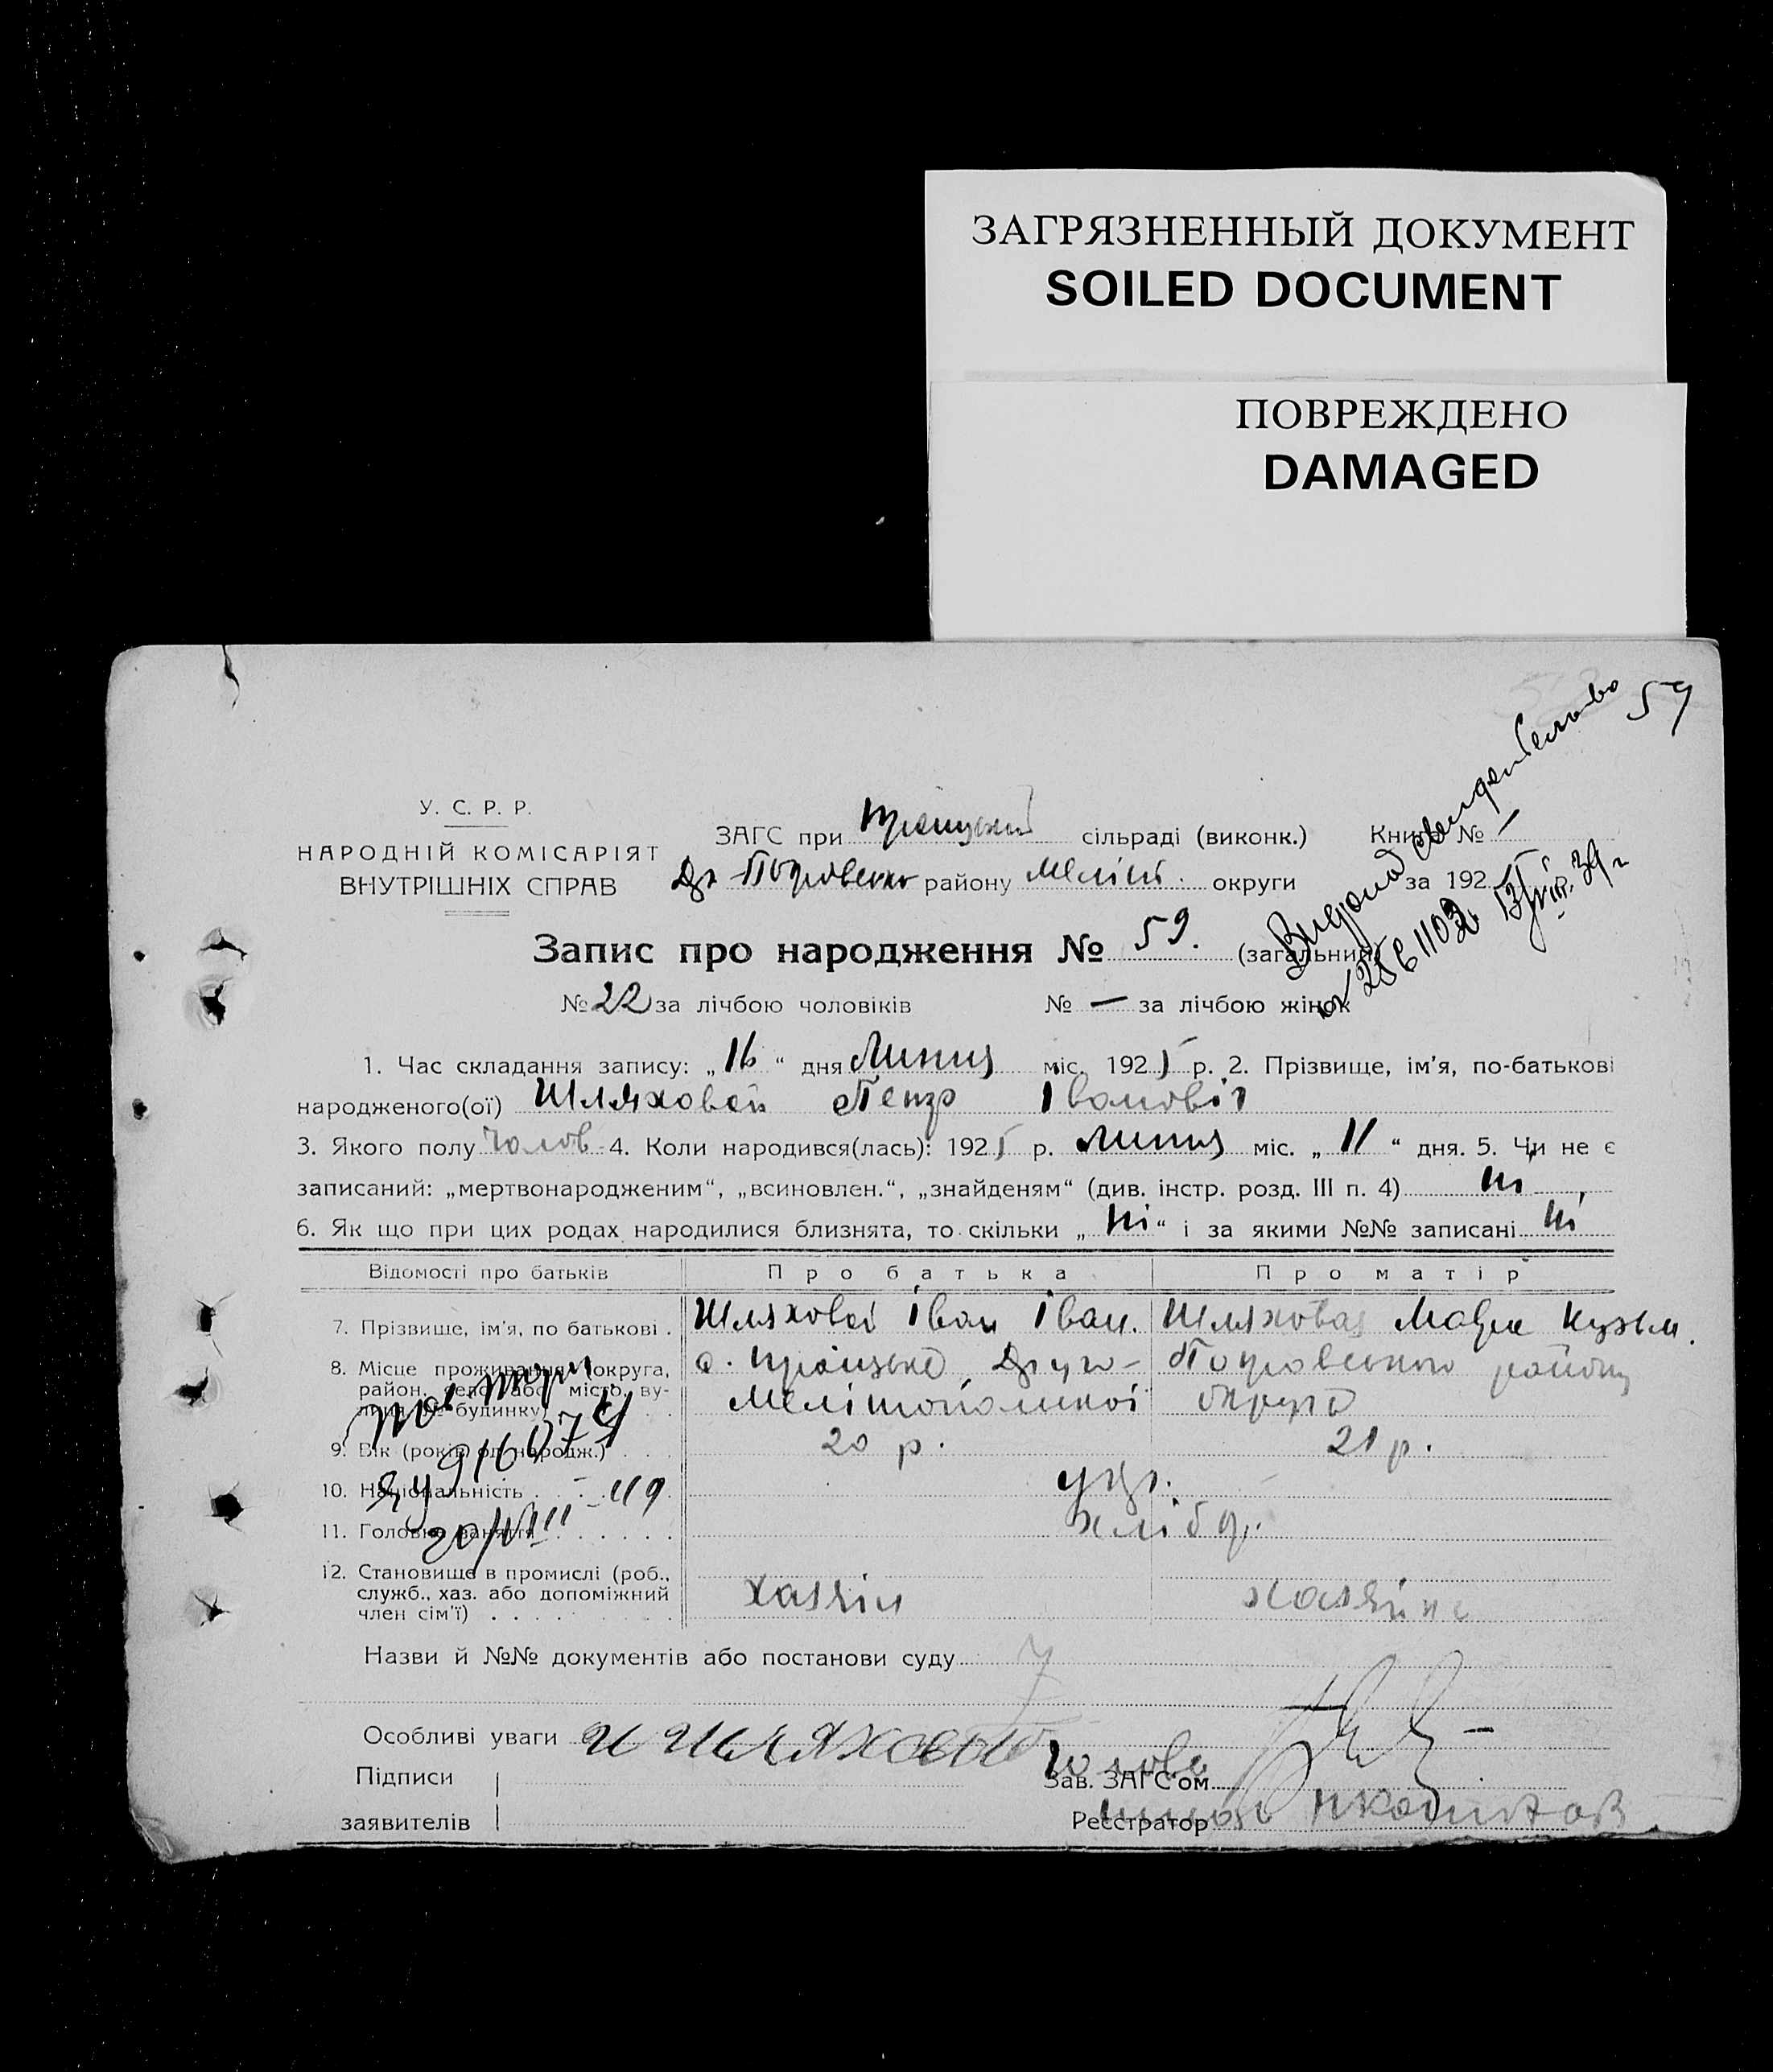 ЗАГРЯЗНЕННЫЙ ДОКУМЕНТ
SOILED DOCUMENT
ПОВРЕЖДЕНО
DAMAGED
59
Видано свидетельство
У. С. Р. Р.
НАРОДНІЙ КОМІСАРІЯТ
ВНУТРІШНІХ СПРАВ
ЗАГС при сільраді (виконк.) Книга № —
району Меліт. округи за 192
Запис про народження № 59. (загальний)
№ 22 за лічбою чоловіків № — за лічбою жінок
1. Час складання запису: „16“ дня Липня міс. 1925 р. 2. Прізвище, ім’я, по-батькові
народженого(ої) Шляховой Петро Іванович
3. Якого полу Чолов. 4. Коли народився(лась): 1925 р. Липня міс. „11“ дня. 5. Чи не є
записаний: „мертвонародженим“, „всиновлен.“, „знайденям“ (див. інстр. розд. III п. 4) Ні
6. Як що при цих родах народилися близнята, то скільки „Ні“ і за якими №№ записані Ні
Відомості про батьків Про батька Про матір
7. Прізвище, ім’я, по батькові . Шляховой Іван Іван. Шляховая Мария Кузьм.
8. Місце проживання (округа, с. Троіцьке, Друго- Покровського району
район, село або місто, ву-
лиця, № будинку) Мелітопольскої округа
9. Вік (років од народж.) . . . 20 р. 21 р.
10. Національність . . . укр.
11. Головне заняття . . . . . . хлібор.
12. Становище в промислі (роб.,
служб., хаз. або допоміжний Хазяін хазяйка
член сім’ї) . . . . . . . .
916074
20/VIII-49
Назви й №№ документів або постанови суду
Особливі уваги И Шляховой
Підписи Голова
Зав. ЗАГС’ом
заявителів Реєстратор